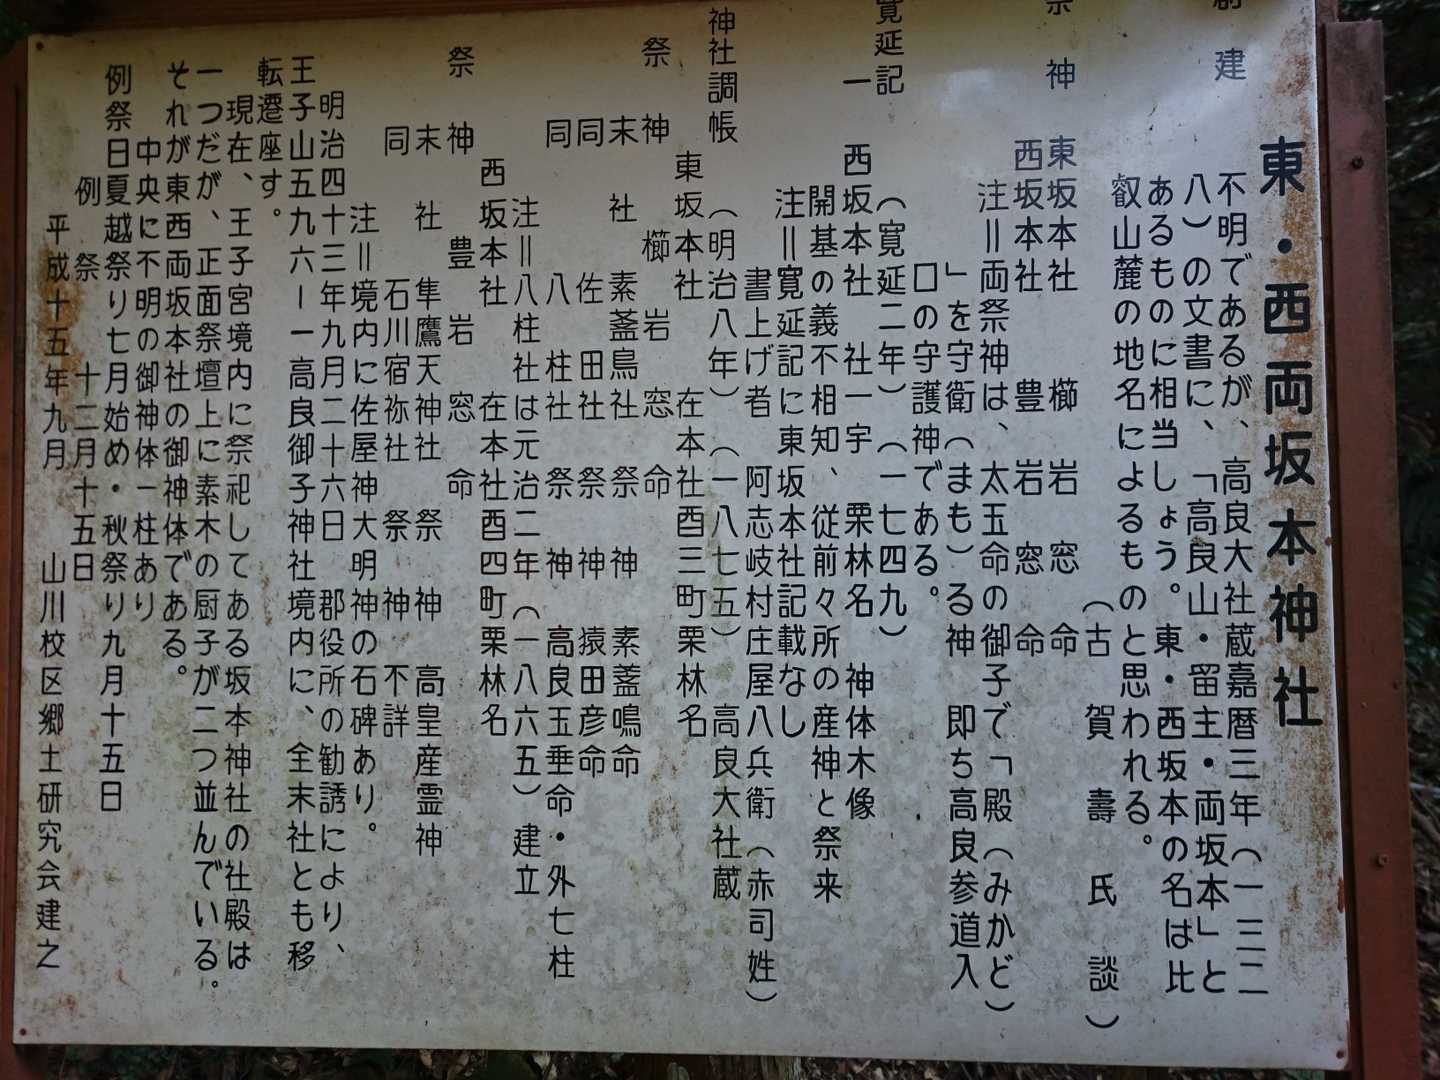 東・西両坂本神社
創建
不明であるが、高良大社蔵嘉暦三年（一三二
八）の文書に、「高良山・留主・両坂本」と
あるものに相当しょう。東・西坂本の名は比
叡山麓の地名によるものと思われる。
（古賀壽氏談）
祭神 東坂本社 櫛岩窓命
西坂本社 豊岩窓命
注＝両祭神は、太玉命の御子で「殿（みかど）
」を守衛（まも）る神 即ち高良参道入
口の守護神である。
寛延記 （寛延二年）（一七四九）
一 西坂本社 社一宇 栗林名 神体木像
開基の義不相知、従前々所の産神と祭来
注＝寛延記に東坂本社記載なし
書上げ者 阿志岐村庄屋八兵衛（赤司姓）
神社調帳 （明治八年）（一八七五）高良大社蔵
東坂本社 在本社酉三町栗林名
祭神 櫛岩窓命
末社 素盞鳥社 祭神 素盞鳴命
同 佐田社 祭神 猿田彦命
同 八柱社 祭神 高良玉垂命・外七柱
注＝八柱社は元治二年（一八六五）建立
西坂本社 在本社酉四町栗林名
祭神 豊岩窓命
末社 隼鷹天神社 祭神 高皇産霊神
同 石川宿祢社 祭神 不詳
注＝境内に佐屋神大明神の石碑あり。
明治四十三年九月二十六日 郡役所の勧誘により、
王子山五九六ー一高良御子神社境内に、全末社とも移
転遷座す。
現在、王子宮境内に祭祀してある坂本神社の社殿は
一つだが、正面祭壇上に素木の厨子が二つ並んでいる。
それが東西両坂本社の御神体である。
中央に不明の御神体一柱あり
例祭日夏越祭り七月始め・秋祭り九月十五日
例祭 十二月十五日
平成十五年九月 山川校区郷土研究会建之